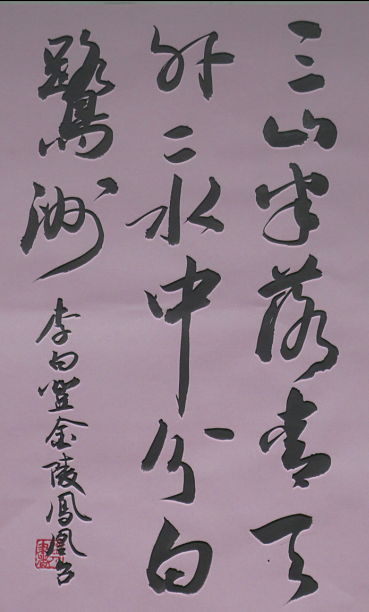 三山半落青天
外二水中分白
鷺洲
李白登金陵鳳凰台